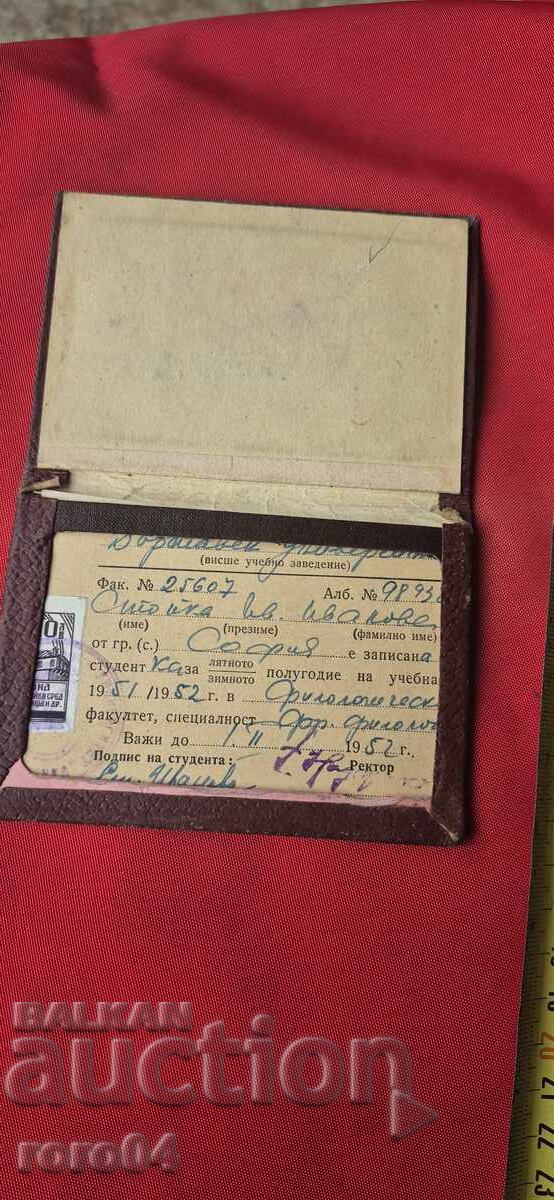 (висше учебно заведение)
Фак. № 25607 Алб. № 9893
Стойка Ив. Иванова
(име) (презиме) (фамилно име)
от гр. (с.) София е записана
студентка за лятното зимното полугодие на учебна
1951/1952 г. в Филологическ
факултет, специалност фр. филолог
Важи до 1. II 1952 г.
Подпис на студента: Ректор
BALKAN
auction
roro04
20
21
22
23